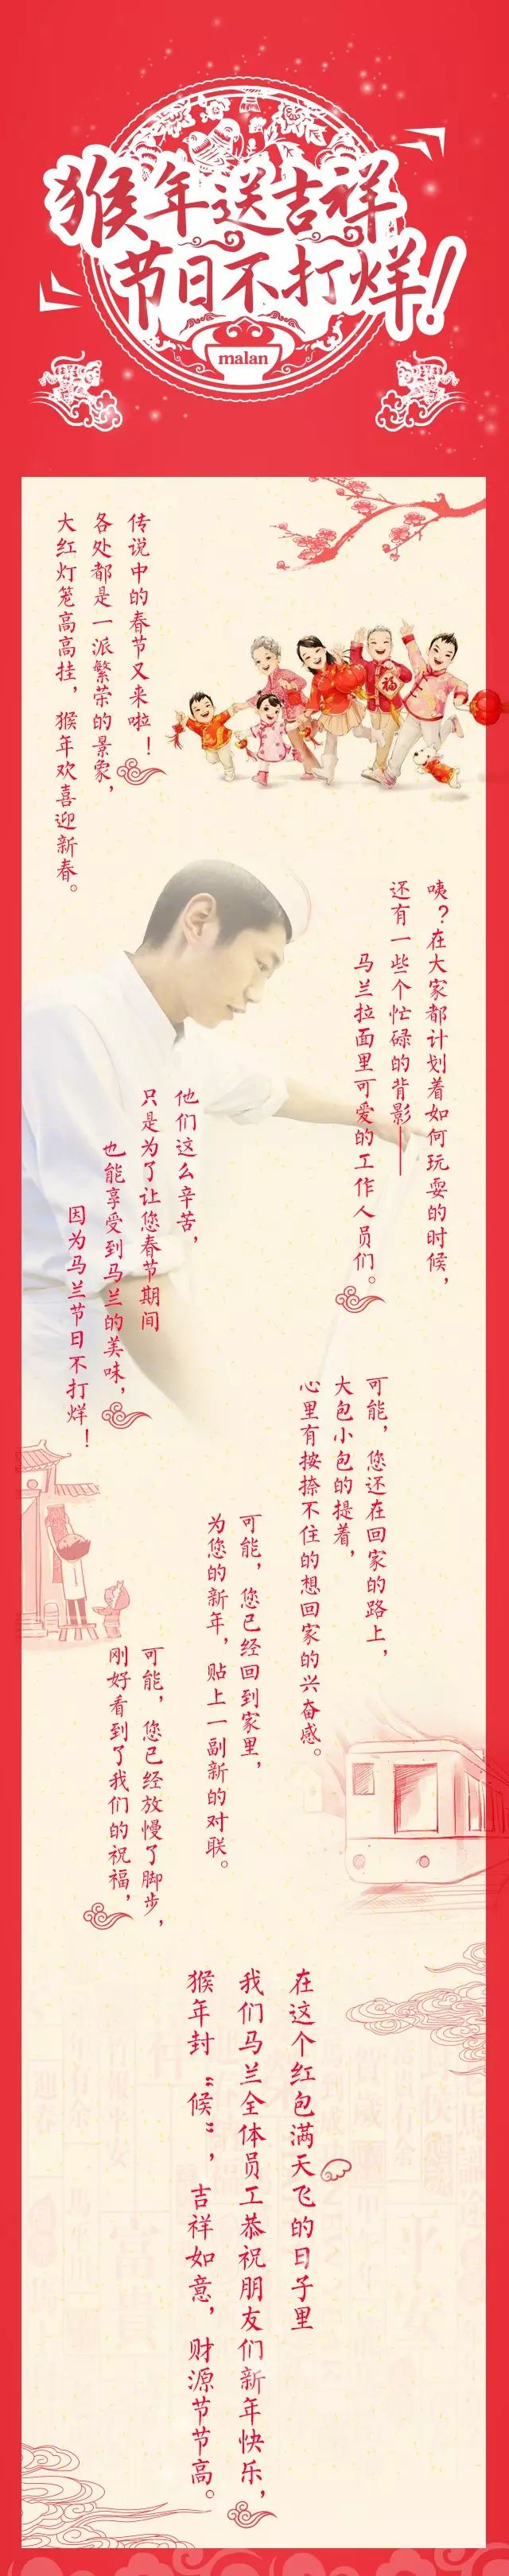 猴年送吉祥
节日不打烊！
malan
传说中的春节又来啦！
各处都是一派繁荣的景象，
大红灯笼高高挂，猴年欢喜迎新春。
福
咦？在大家都计划着如何玩耍的时候，
还有一些个忙碌的背影——
马兰拉面里可爱的工作人员们。
他们这么辛苦，
只是为了让您春节期间
也能享受到马兰的美味，
因为马兰节日不打烊！
可能，您还在回家的路上，
大包小包的提着，
心里有按捺不住的想回家的兴奋感。
可能，您已经回到家里，
为您的新年，贴上一副新的对联。
可能，您已经放慢了脚步，
刚好看到了我们的祝福，
在这个红包满天飞的日子里
我们马兰全体员工恭祝朋友们新年快乐，
猴年封“候”，吉祥如意，财源节节高。